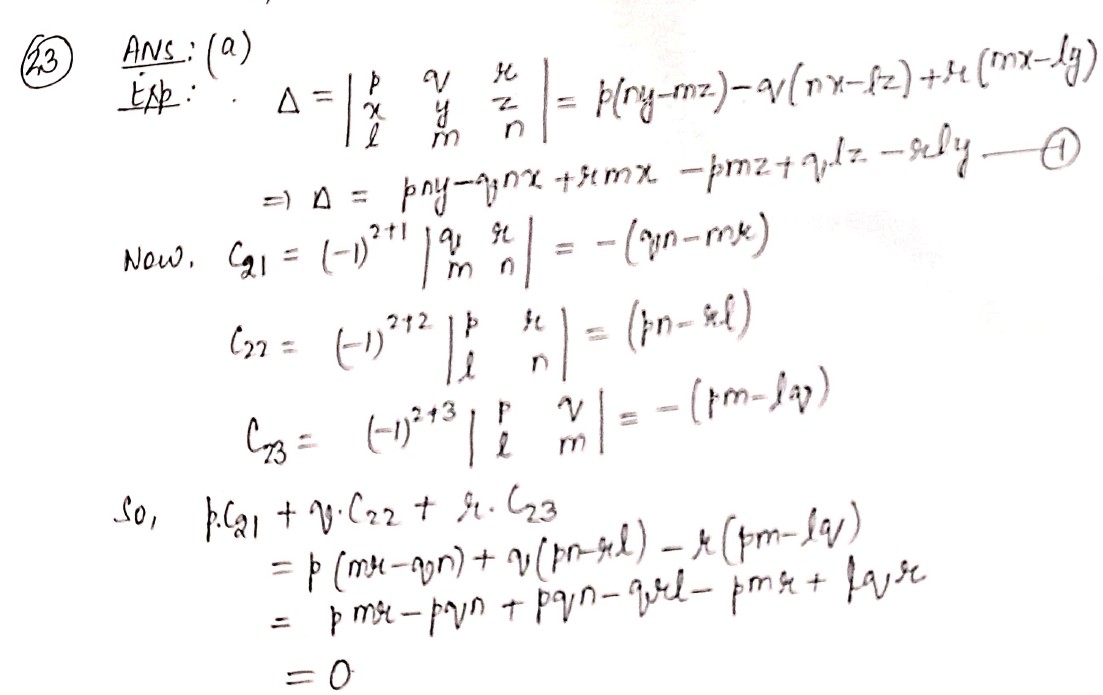 23 ANS: (a)
Exp: . Δ = | p q r | = p(ny-mz)-q(nx-lz)+r(mx-ly)
| x y z |
| l m n |
⇒ Δ = pny-qnx+rmx-pmz+qlz-rly — ①
Now, C₂₁ = (-1)²⁺¹ | q r | = -(qn-mr)
| m n |
C₂₂ = (-1)²⁺² | p r | = (pn-rl)
| l n |
C₂₃ = (-1)²⁺³ | p q | = -(pm-lq)
| l m |
So, p.C₂₁ + q.C₂₂ + r.C₂₃
= p(mr-qn) + q(pn-rl) - r(pm-lq)
= pmr-pqn + pqn-qrl-pmr + lqr
= 0